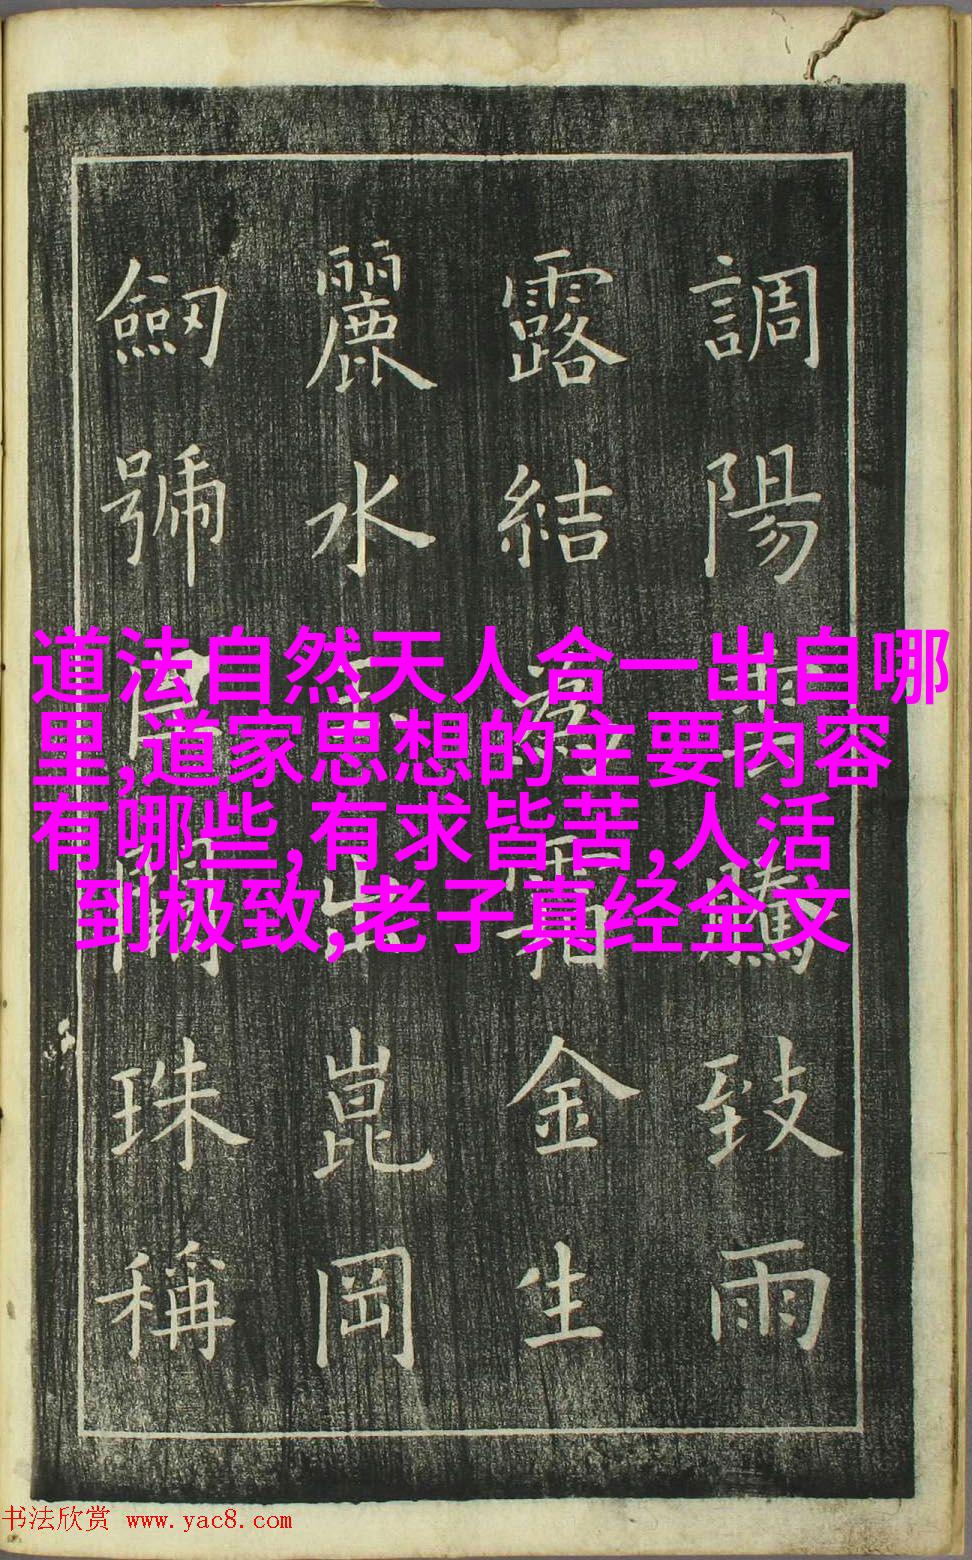 調陽雲騰致雨
露結為霜金生
麗水玉出崑岡
劒號巨闕珠稱
道法自然天人合一出自哪
里,道家思想的主要内容
有哪些,有求皆苦,人活
到极致,老子真经全文
书法欣赏 www.yac8.com